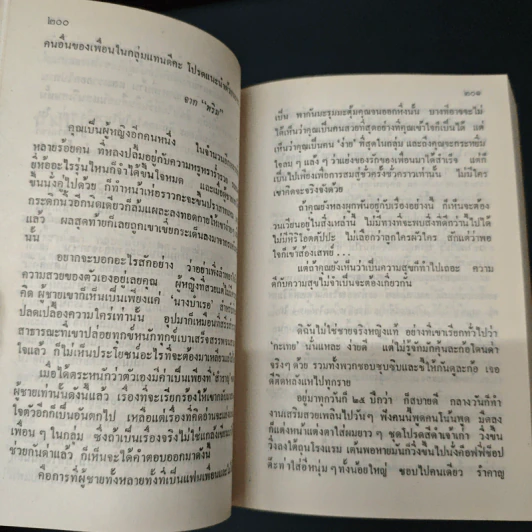 ๒๐๐
คนอื่นของเพื่อนในกลุ่มแทนดีคะ โปรดแนะนำด้วย
จาก "พริ้ม"
คุณเป็นผู้หญิงอีกคนหนึ่ง ในจำนวน
หลายร้อยคน ที่หลงปลื้มอยู่กับความหรูหรา
ที่ห้ออะไรรุ่นไหนก็จำได้ขึ้นใจหมด
ขึ้นมั่งคู่ไปด้วย ก็ทำหน้าเห่อราวกะจะขึ้น
แล้ว ผลสุดท้ายก็เลยถูกเขาเขี่ยกระเด็นลงมา
นั้น
อยากจะบอกอะไรสักอย่าง ว่าอย่าพึ่ง
ความสวยของตัวเองอยู่เลยคุณ ผู้หญิงที่สวย
คิด ผู้ชายเขาก็เห็นเป็นเพียงแค่ 'นางบำเรอ'
ปลดเปลื้องความใคร่เท่านั้น อุปมาก็เหมือน
สาธารณะที่เขาปล่อยทุกข์หนักทุกข์เบาเสร็จ
ใจแล้ว ก็ไม่เห็นประโยชน์อะไรที่จะต้องมา
เมื่อได้ตระหนักว่าตัวเองมีค่าเป็นเพียงที่
ผู้ชายเท่านั้นดังนี้แล้ว เรื่องที่จะเรียกร้องให้เขา
ใจตัวอีกก็เป็นอันตกไป เหลือแต่เรื่องที่คิดอ่าน
เพื่อน ๆ ในกลุ่ม ซึ่งถ้าเป็นเรื่องจริงไม่ใช่แกล้ง
ช่วยกันด่าแล้ว ก็เห็นจะได้คำตอบออกมาดังนี้
คือการที่ผู้ชายทั้งหลายทั้งที่เป็นแฟนเพื่อนและ
๒๐๑
เป็น พากันมะรุมมะตุ้มคุณจนออกทั้งนั้น บางทีอาจจะไม่
ได้เห็นว่าคุณเป็นคนสวยที่สุดอย่างที่คุณเข้าใจก็เป็นได้ แต่
เห็นว่าคุณเป็นคน 'ง่าย' ที่สุดในกลุ่มก็เป็นได้
ใจลม ๆ แล้ง ๆ ว่าแย่งของรักของเพื่อนมาได้สำเร็จ แต่ก็
เป็นไปเพียงเพื่อการสมสู่ชั่วครั้งชั่วคราวเท่านั้น ไม่มีใคร
เขาคิดจะจริงจังด้วย
ถ้าคุณยังหลงผูกพันอยู่กับเรื่องอย่างนี้ ก็เห็นจะต้อง
วนเวียนอยู่ในสิ่งเหล่านี้ ไม่มีทางที่จะพบสิ่งที่ดีกว่านี้ไปได้
ไม่มีหิริโอตตัปปะ ไม่เลือกว่าลูกใครผัวใคร สักแต่ว่าพอ
ใจก็เข้าซ้องเสพย์ ...
แต่ถ้าคุณยังเห็นว่าเป็นความสุขก็ทำไปเถอะ ความ
ดีกับความสุขไม่จำเป็นจะต้องเกี่ยวกัน
ดิฉันไม่ใช่ชายจริงหญิงแท้ อย่างที่เขาเรียกทั่วไปว่า
'กะเทย' นั่นแหละ ง่ายดี แต่ไม่รู้จักมักคุ้นละก้อโดนด่า
จริงๆ ด้วย รวมทั้งพวกชอบซุบซิบและชี้ให้กันดูละก้อ เจอ
ดีคิดหลังแห่ไปทุกราย
อยู่มาทุกวันนี้ ๒๕ ปีกว่า ก็สบายดี กลางวันก็ทำ
งานเสริมสวยเพลินไปวันๆ ฟังคนนี้พูดคนโน้นพูด มืดลง
ก็แต่งหน้าแต่งตาใส่ผมยาว ๆ ชุดโปรดสีดำเจ้าเก่า วิ่งขึ้น
วิ่งลงใต้ถุนโรงแรม เดินพอหายมันก็วิ่งขึ้นไปนั่งค้อฟฟี่ช้อป
ด๊ะด๋าใส่อีหนุ่มๆทั้งน้อยใหญ่ ชอบไปคนเดียว รำคาญ